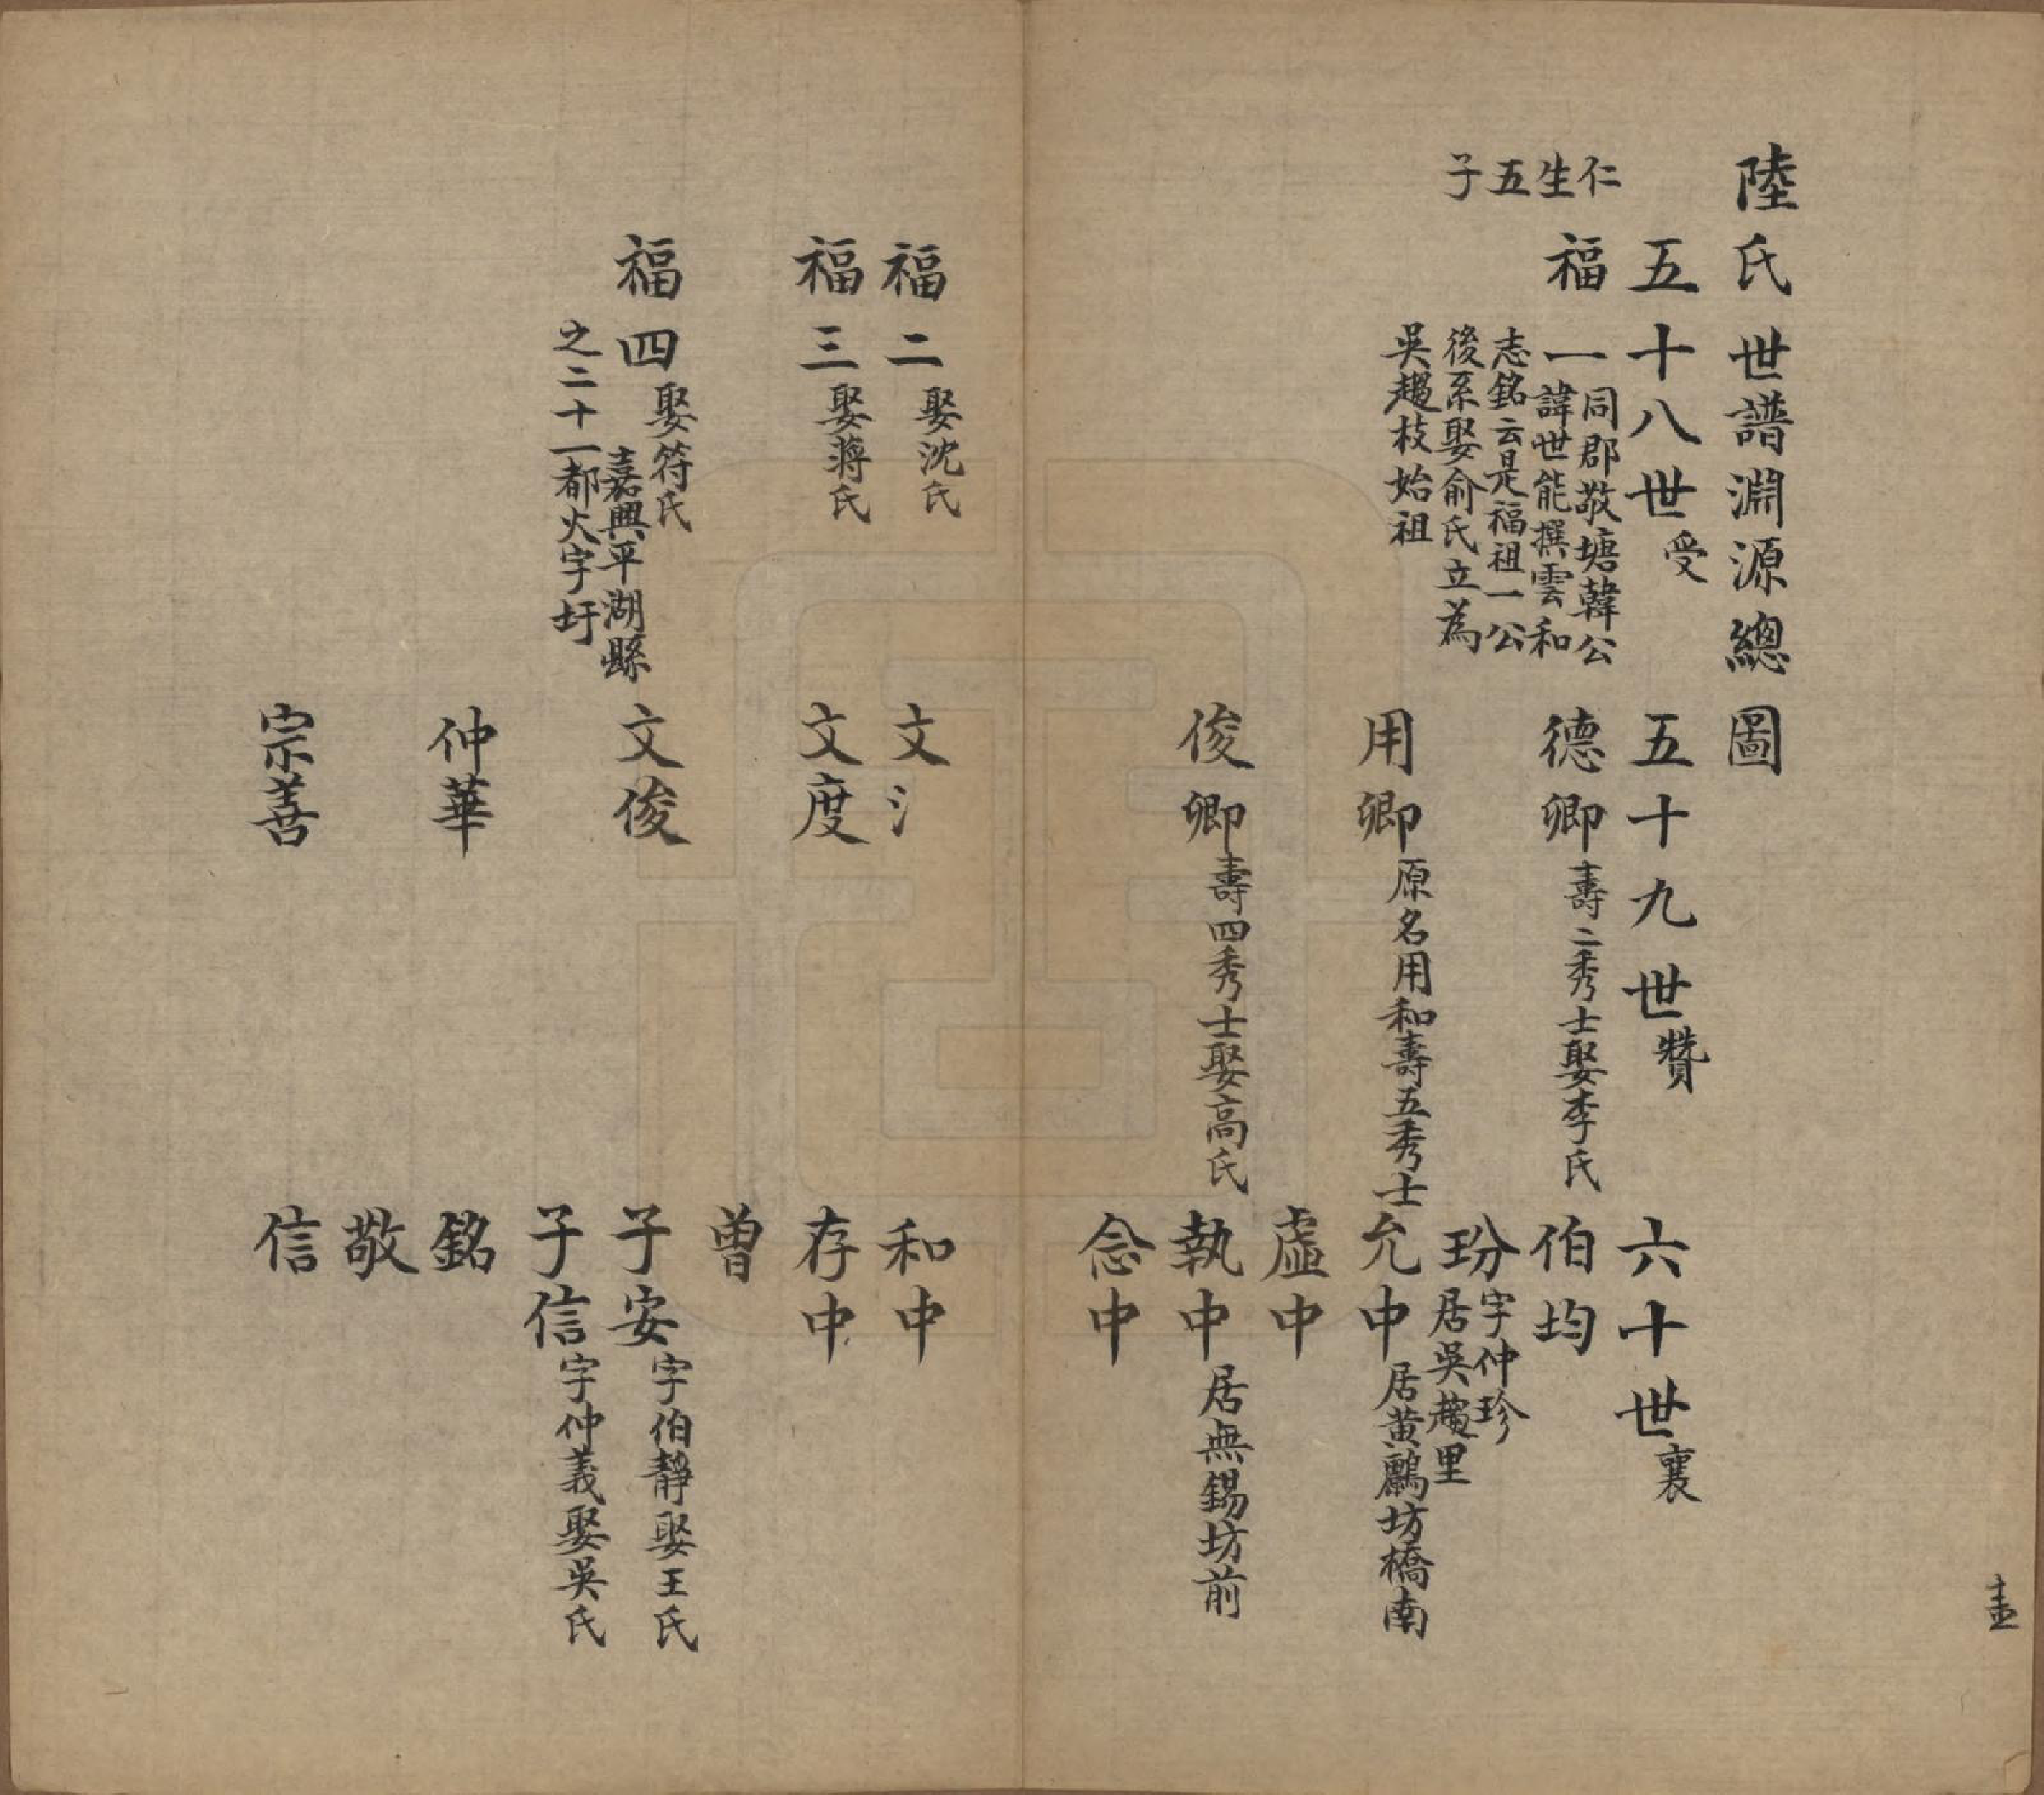 陸氏世譜淵源總圖
五十八世受
五十九世贊
六十世襄
仁
生
五
子
福一
同郡敬塘韓公
諱世能撰雲和
志銘云是福祖一公
後系娶俞氏立為
吳趨枝始祖
德卿壽二秀士娶李氏
伯均
玢字仲珍
居吳趨里
用卿原名用和壽五秀士
允中居黃鸝坊橋南
虛中
俊卿壽四秀士娶高氏
執中居無錫坊前
念中
福二娶沈氏
文氵
和中
福三娶蔣氏
文度
存中
曾
福四娶符氏
嘉興平湖縣
之二十一都火字圩
文俊
子安字伯靜娶王氏
子信字仲義娶吳氏
仲華
銘
敬
宗善
信